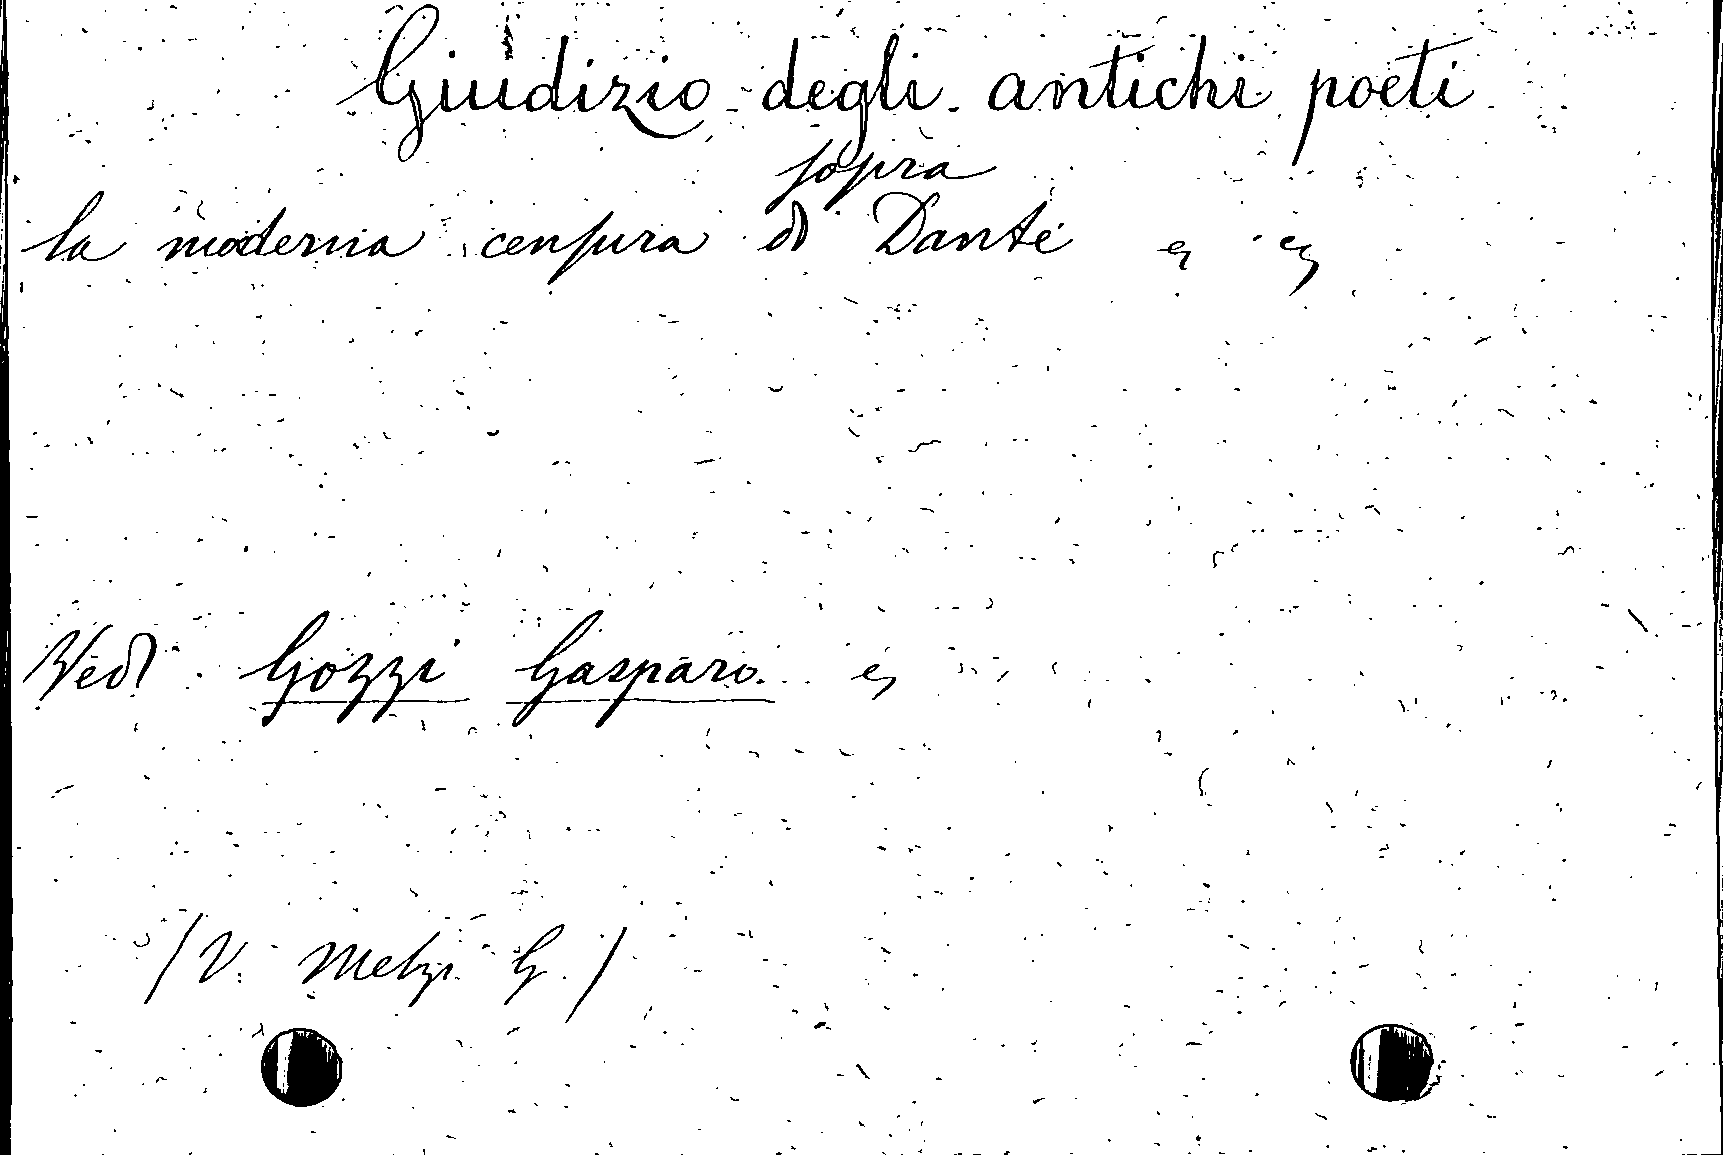 Giudizio degli antichi poeti
sopra
la moderna censura di Dante
Vedi Gozzi Gasparo.
(V. Melzi G.)